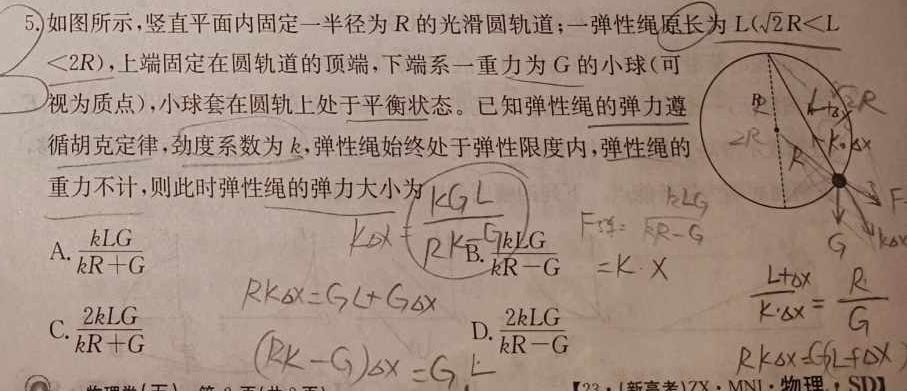 5.如图所示,竖直平面内固定一半径为 R 的光滑圆轨道;一弹性绳原长为 L(√2R<L
<2R),上端固定在圆轨道的顶端,下端系一重力为 G 的小球(可
视为质点),小球套在圆轨上处于平衡状态。已知弹性绳的弹力遵
循胡克定律,劲度系数为 k,弹性绳始终处于弹性限度内,弹性绳的
重力不计,则此时弹性绳的弹力大小为
R
2R
R
L+Δx
√2R
K·Δx
F
G
kΔx
KΔx = KGL/(RK-G)
F弹 = kLG/(kR-G)
= K·X
A. kLG/(kR+G)
B. kLG/(kR-G)
RKΔx=GL+GΔx
(L+Δx)/(K·Δx) = R/G
C. 2kLG/(kR+G)
D. 2kLG/(kR-G)
(RK-G)Δx=GL
RKΔx=G(L+Δx)
【23·(新高考)ZX·MNJ·物理